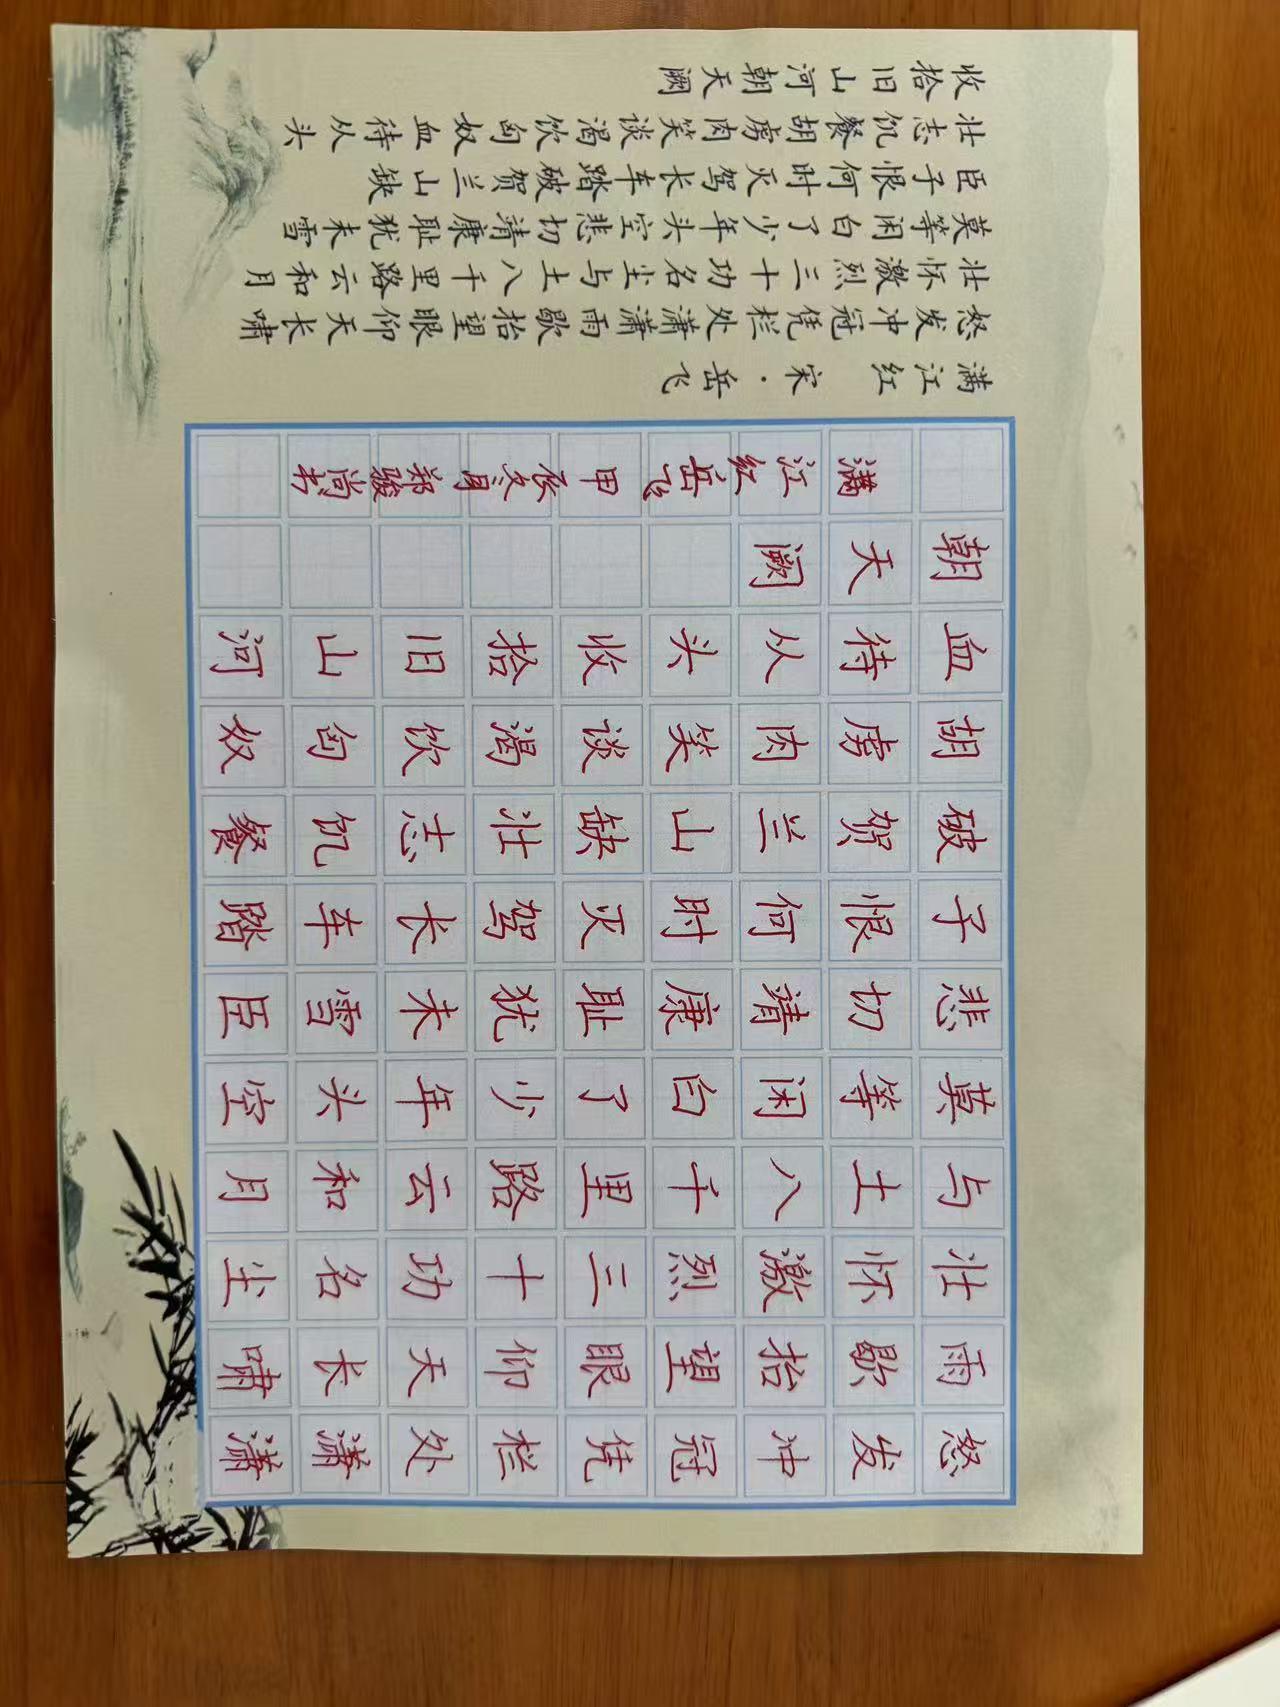 怒发冲冠凭栏处潇潇
雨歇抬望眼仰天长啸
壮怀激烈三十功名尘
与土八千里路云和月
莫等闲白了少年头空
悲切靖康耻犹未雪臣
子恨何时灭驾长车踏
破贺兰山缺壮志饥餐
胡虏肉笑谈渴饮匈奴
血待从头收拾旧山河
朝天阙
满江红岳飞 甲辰冬月郑骏尚书
满江红 宋·岳飞
怒发冲冠凭栏处潇潇雨歇抬望眼仰天长啸
壮怀激烈三十功名尘与土八千里路云和月
莫等闲白了少年头空悲切靖康耻犹未雪
臣子恨何时灭驾长车踏破贺兰山缺
壮志饥餐胡虏肉笑谈渴饮匈奴血待从头
收拾旧山河朝天阙